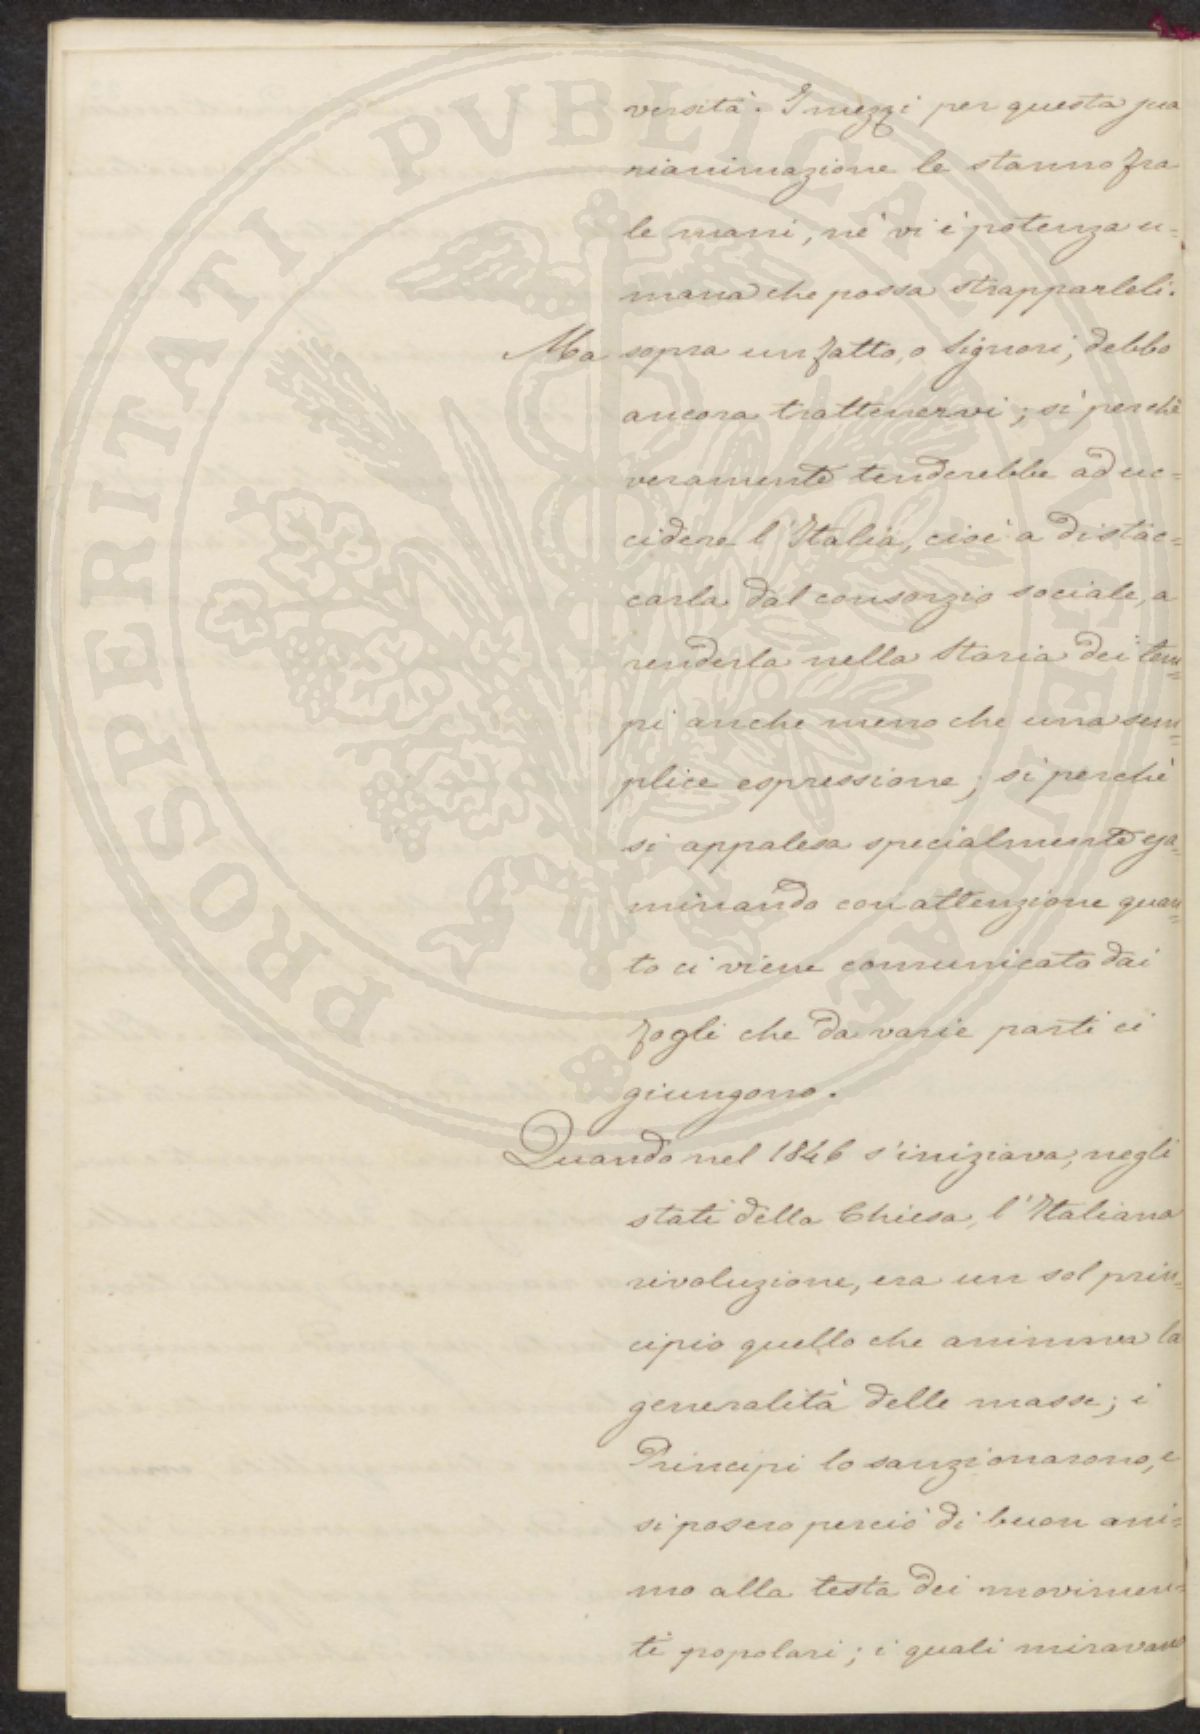 versità. I mezzi per questa sua
rianimazione le stanno fra
le mani, nè vi è potenza u=
mana che possa strapparleli.
Ma sopra un fatto, o Signori, debbo
ancora trattenervi; sì perchè
veramente tenderebbe ad uc=
cidere l'Italia, cioè a distac=
carla dal consorzio sociale, a
renderla nella Storia dei tem=
pi anche meno che una sem=
plice espressione; sì perchè
si appalesa specialmente esa=
minando con attenzione quan=
to ci viene comunicato dai
fogli che da varie parti ci
giungono.
Quando nel 1846 s'iniziava, negli
stati della Chiesa, l'Italiana
rivoluzione, era un sol prin=
cipio quello che animava la
generalità delle masse; i
Principi lo sanzionarono, e
si posero perciò di buon ani=
mo alla testa dei movimen=
ti popolari; i quali miravano
PROSPERITATI PUBLICAE AUGENDAE